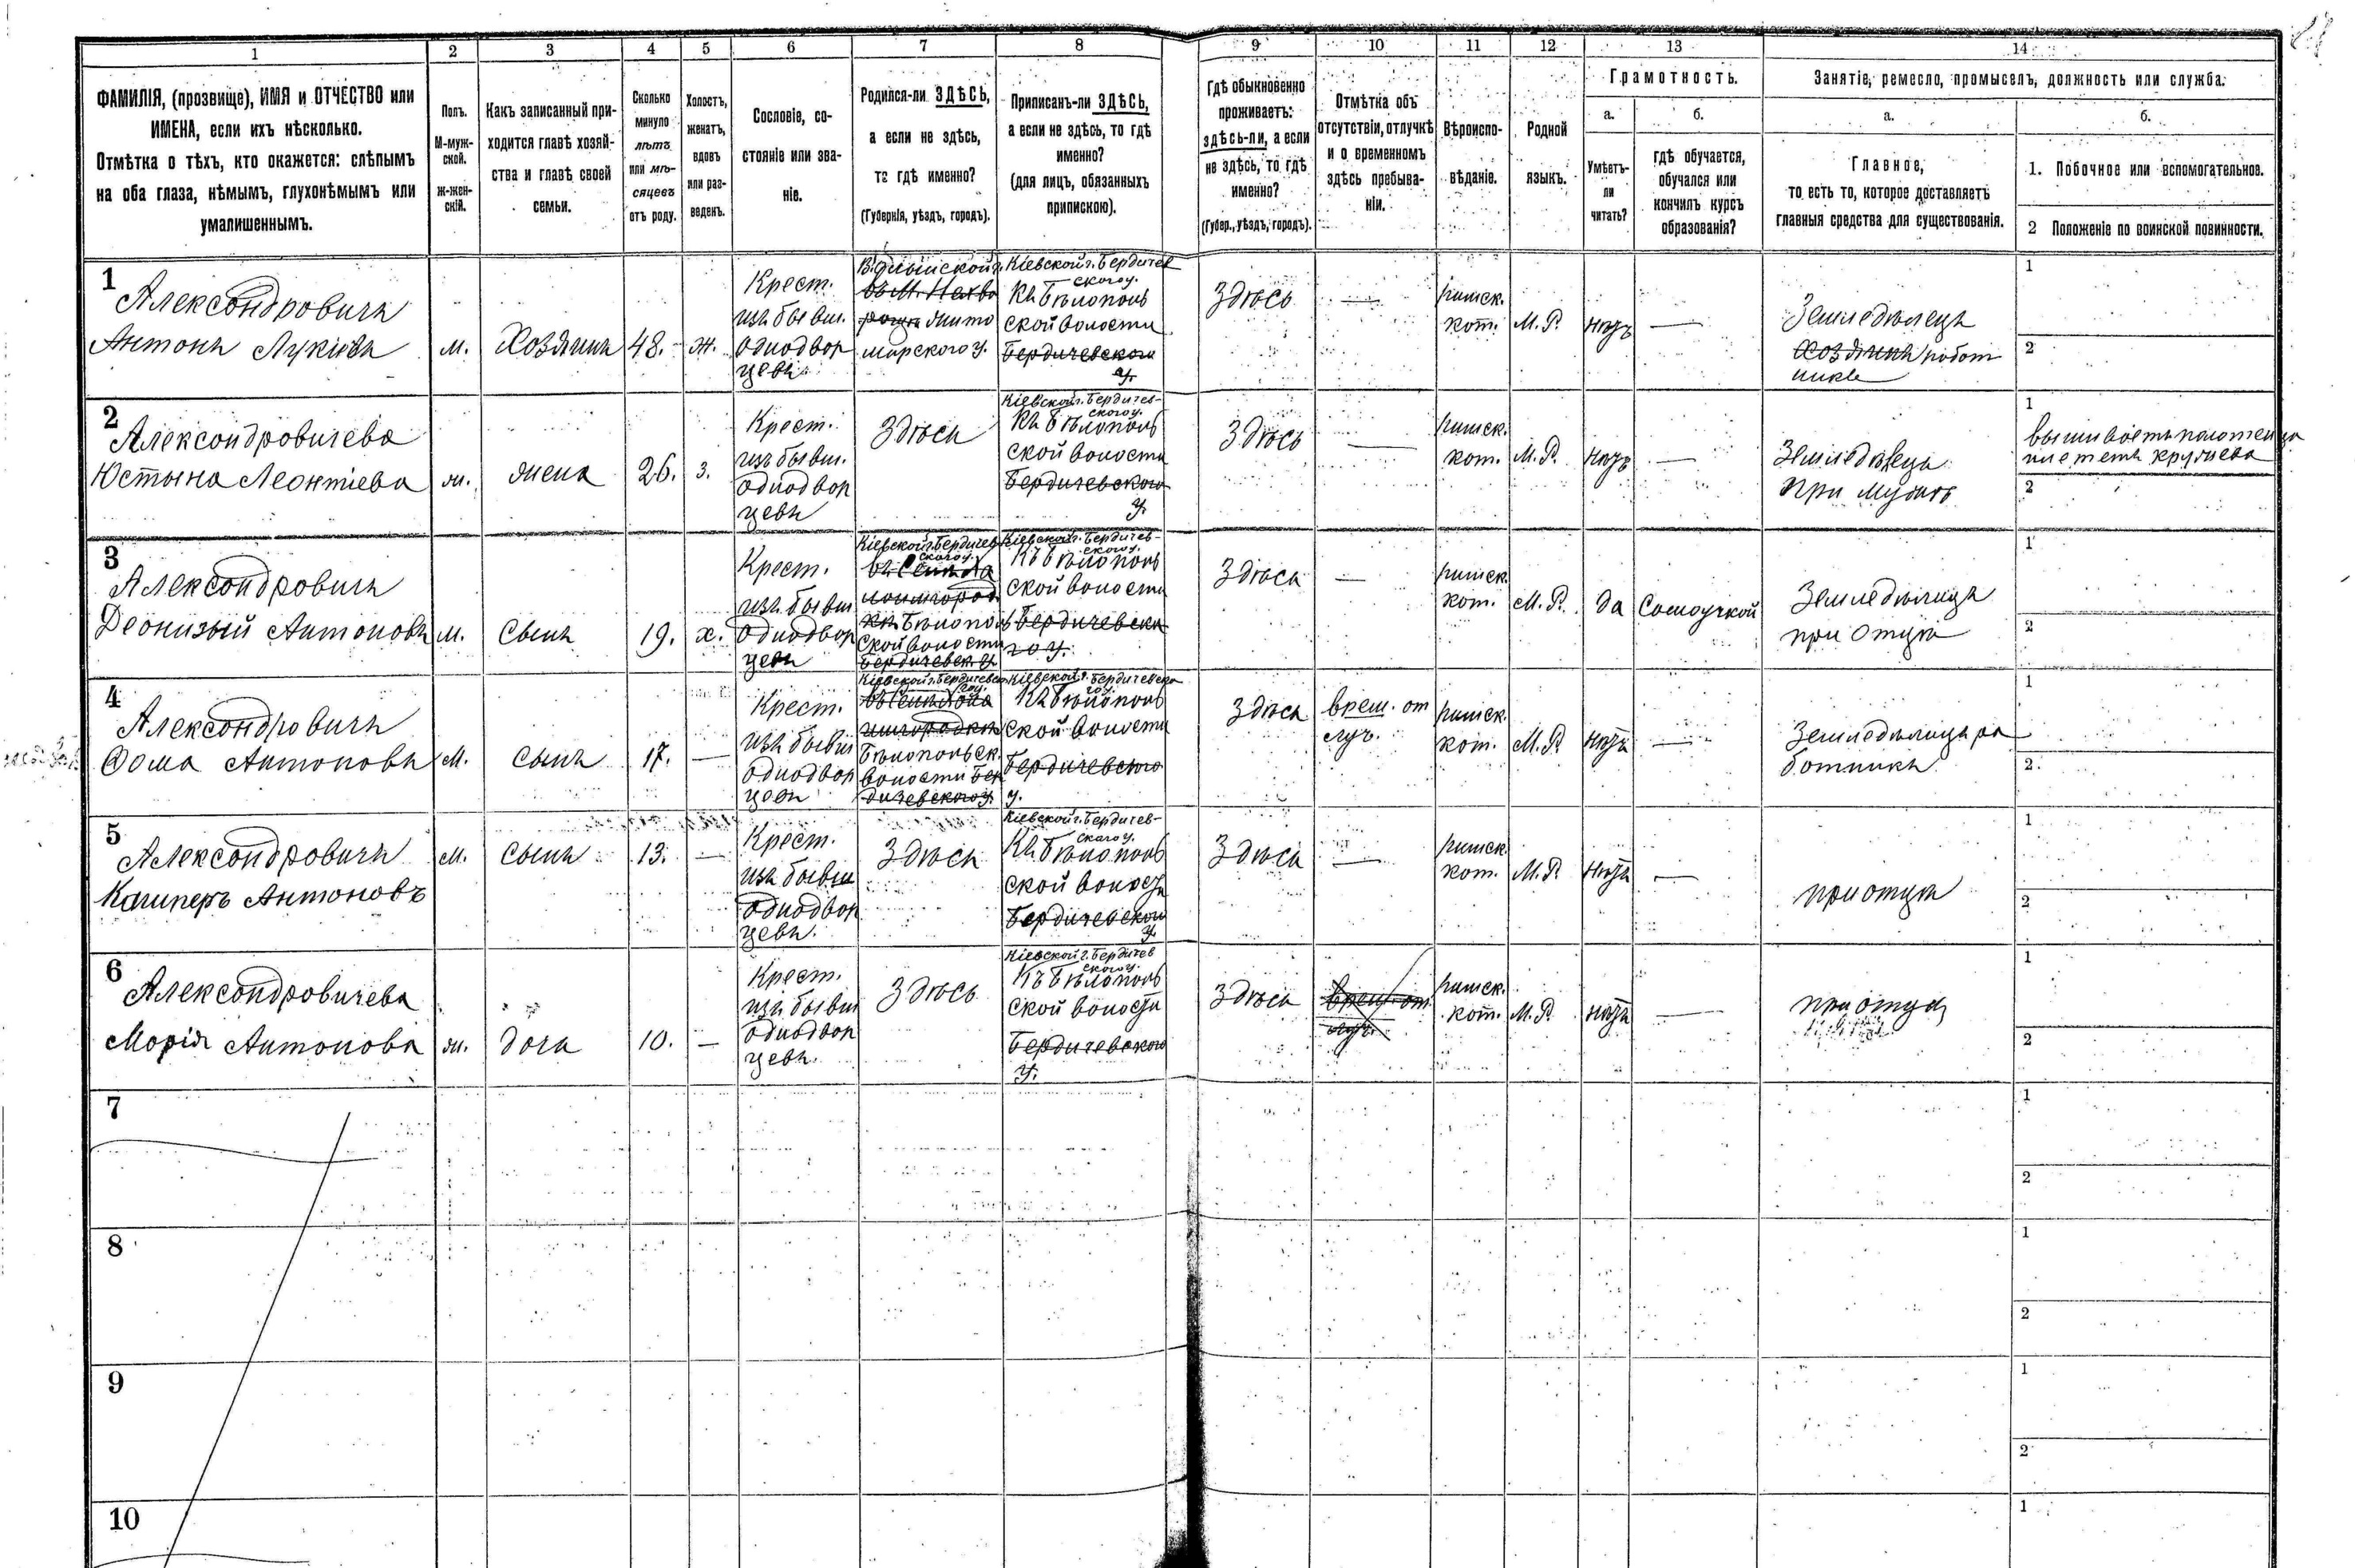 1
2
3
4
5
6
7
8
9
10
11
12
13
14
ФАМИЛІЯ, (прозвище), ИМЯ и ОТЧЕСТВО или
ИМЕНА, если ихъ нѣсколько.
Отмѣтка о тѣхъ, кто окажется: слѣпымъ
на оба глаза, нѣмымъ, глухонѣмымъ или
умалишеннымъ.
Полъ.
М-муж-
ской.
ж-жен-
скій.
Какъ записанный при-
ходится главѣ хозяй-
ства и главѣ своей
семьи.
Сколько
минуло
лѣтъ
или мѣ-
сяцевъ
отъ роду.
Холостъ,
женатъ,
вдовъ
или раз-
веденъ.
Сословіе, со-
стояніе или зва-
ніе.
Родился-ли ЗДѢСЬ,
а если не здѣсь,
то гдѣ именно?
(Губернія, уѣздъ, городъ).
Приписанъ-ли ЗДѢСЬ,
а если не здѣсь, то гдѣ
именно?
(для лицъ, обязанныхъ
припискою).
Гдѣ обыкновенно
проживаетъ:
здѣсь-ли, а если
не здѣсь, то гдѣ
именно?
(Губер., уѣздъ, городъ).
Отмѣтка объ
отсутствіи, отлучкѣ
и о временномъ
здѣсь пребыва-
ніи.
Вѣроиспо-
вѣданіе.
Родной
языкъ.
Грамотность.
а.
Умѣетъ-
ли
читать?
б.
гдѣ обучается,
обучался или
кончилъ курсъ
образованія?
Занятіе, ремесло, промыселъ, должность или служба.
а.
Главное,
то есть то, которое доставляетъ
главныя средства для существованія.
б.
1. Побочное или вспомогательное.
2 Положеніе по воинской повинности.
1
Александровичъ
Антонъ Лукіевъ
м.
Хозяинъ
48.
ж.
Крест.
изъ бывш.
однодвор
цевъ
Волынской г.
въ М.
Жито
мирского у.
Кіевской г. Бердичев
ского у.
Къ Бѣлополь
ской волости
Бердичевского
у.
Здѣсь
—
римск.
кот.
М. Р.
нѣтъ
—
Земледѣлецъ
Хозяинъ работ
никъ
1
2
2
Александровичева
Юстына Леонтіева
ж.
жена
26.
з.
Крест.
изъ бывш.
однодвор
цевъ
Здѣсь
Кіевской г. Бердичев-
ского у.
Къ Бѣлополь
ской волости
Бердичевского
у.
Здѣсь
—
римск.
кот.
М. Р.
нѣтъ
—
Земледѣлецъ
при мужѣ
1
вышиваетъ полотенца
плететъ кружева
2
3
Александровичъ
Деонизый Антоновъ
м.
Сынъ
19.
х.
Крест.
изъ бывш
однодвор
цевъ
Кіевской г. Бердичев
ского у.
къ Бѣлополь
ской волости
Бердичевск. у
Кіевской г. Бердичев-
ского у.
Къ Бѣлополь
ской волости
Бердичевска
го у.
Здѣсь
—
римск.
кот.
М. Р.
да
Самоучкой
Земледѣлецъ
при Отцѣ
1
2
4
Александровичъ
Фома Антоновъ
М.
Сынъ
17.
—
Крест.
изъ бывш
однодвор
цевъ
Кіевской г. Бердичевска
го у.
Бѣлопольск.
волости Бер
дичевского у.
Кіевской г. Бердичевска
го у.
Къ Бѣлополь
ской волости
Бердичевского
у.
Здѣсь
врем. от
луч.
римск.
кот.
М. Р.
нѣтъ
—
Земледѣлецъ ра
ботникъ
1
2.
5
Александровичъ
Каиперъ Антоновъ
М.
Сынъ
13.
—
Крест.
изъ бывш
однодвор
цевъ.
Здѣсь
Кіевской г. Бердичев-
ского у.
Къ Бѣлополь
ской волости
Бердичевского
у.
Здѣсь
—
римск
кот.
М. Р.
нѣтъ
—
при отцѣ
1
2
6
Александровичева
Марія Антонова
ж.
дочь
10.
—
Крест.
изъ бывш
однодвор
цевъ.
Здѣсь
Кіевской г. Бердичев
ского у.
Къ Бѣлополь
ской волости
Бердичевского
у.
Здѣсь
врем. от
луч.
римск.
кот.
М. Р.
нѣтъ
—
при отцѣ
1
2
7
1
2
8
1
2
9
1
2
10
1